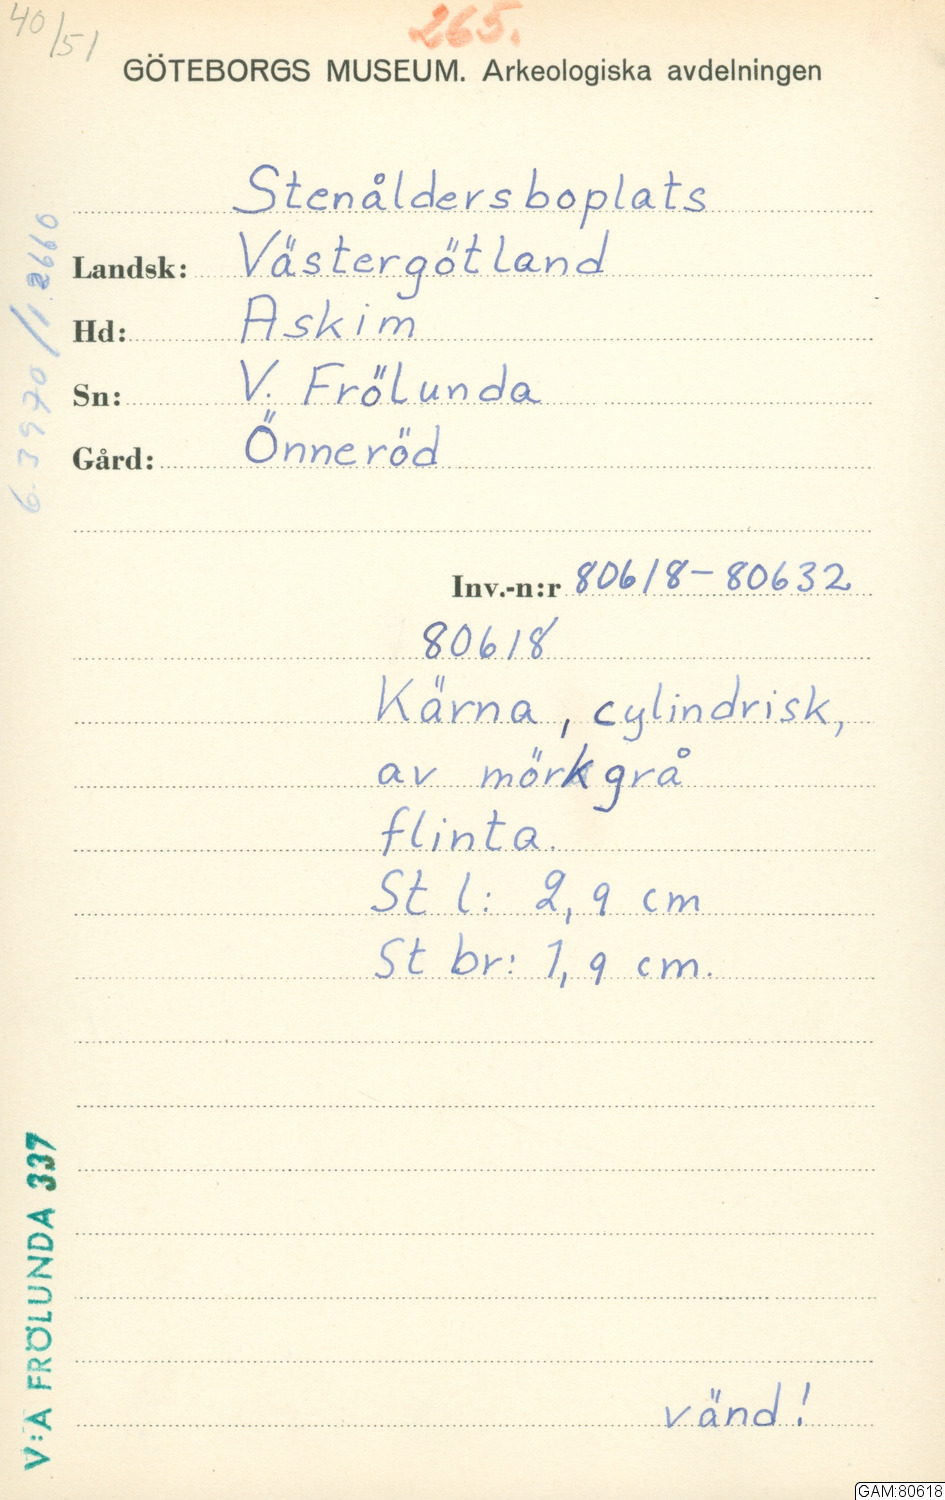 40/51
265.
GÖTEBORGS MUSEUM. Arkeologiska avdelningen
Stenåldersboplats
Landsk: Västergötland
Hd: Askim
Sn: V. Frölunda
Gård: Önneröd
6.3970/12660
Inv.-n:r 80618-80632
80618
Kärna, cylindrisk,
av mörkgrå
flinta.
St l: 2,9 cm
St br: 1,9 cm.
V:A FRÖLUNDA 337
vänd!
GAM:80618